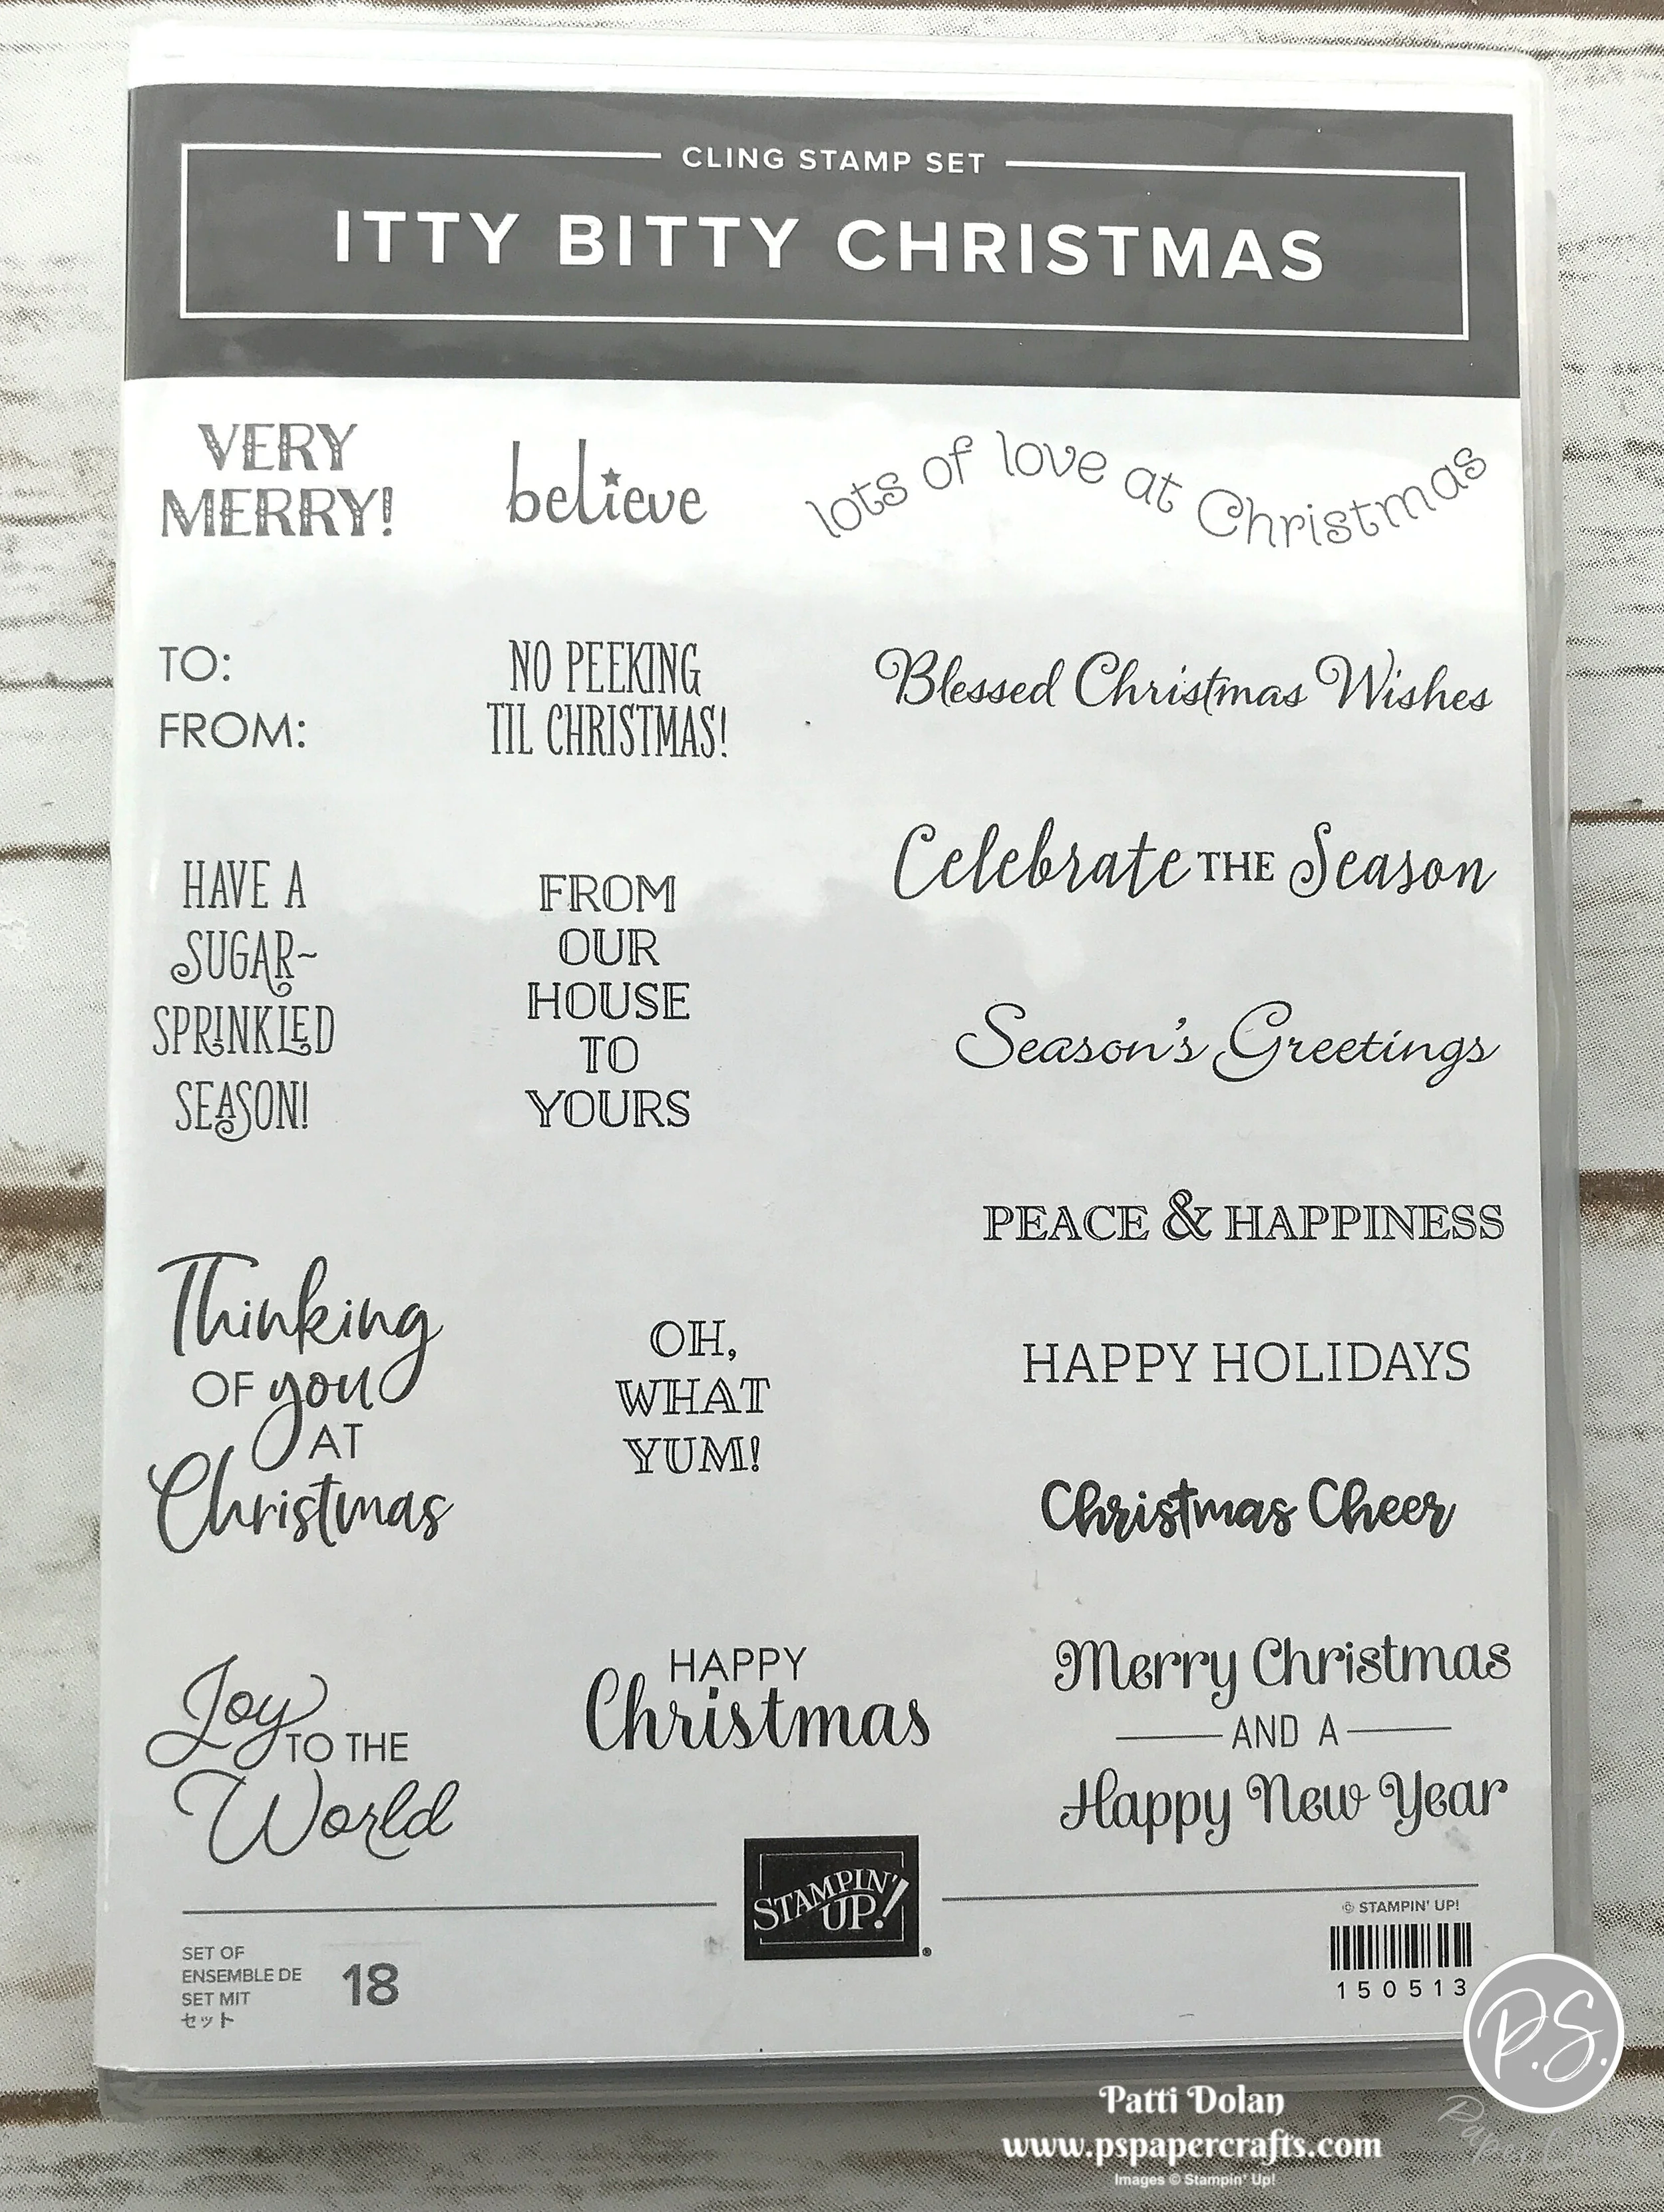 CLING STAMP SET
ITTY BITTY CHRISTMAS
VERY
MERRY!
believe
lots of love at Christmas
TO:
FROM:
NO PEEKING
TIL CHRISTMAS!
Blessed Christmas Wishes
HAVE A
SUGAR~
SPRINKLED
SEASON!
FROM
OUR
HOUSE
TO
YOURS
Celebrate THE Season
Season's Greetings
PEACE & HAPPINESS
Thinking
OF you
AT
Christmas
OH,
WHAT
YUM!
HAPPY HOLIDAYS
Christmas Cheer
Joy
TO THE
World
HAPPY
Christmas
Merry Christmas
AND A
Happy New Year
STAMPIN'
UP!®
SET OF
ENSEMBLE DE
SET MIT
セット
18
© STAMPIN' UP!
150513
P.S.
Patti Dolan
www.pspapercrafts.com
Images © Stampin' Up!